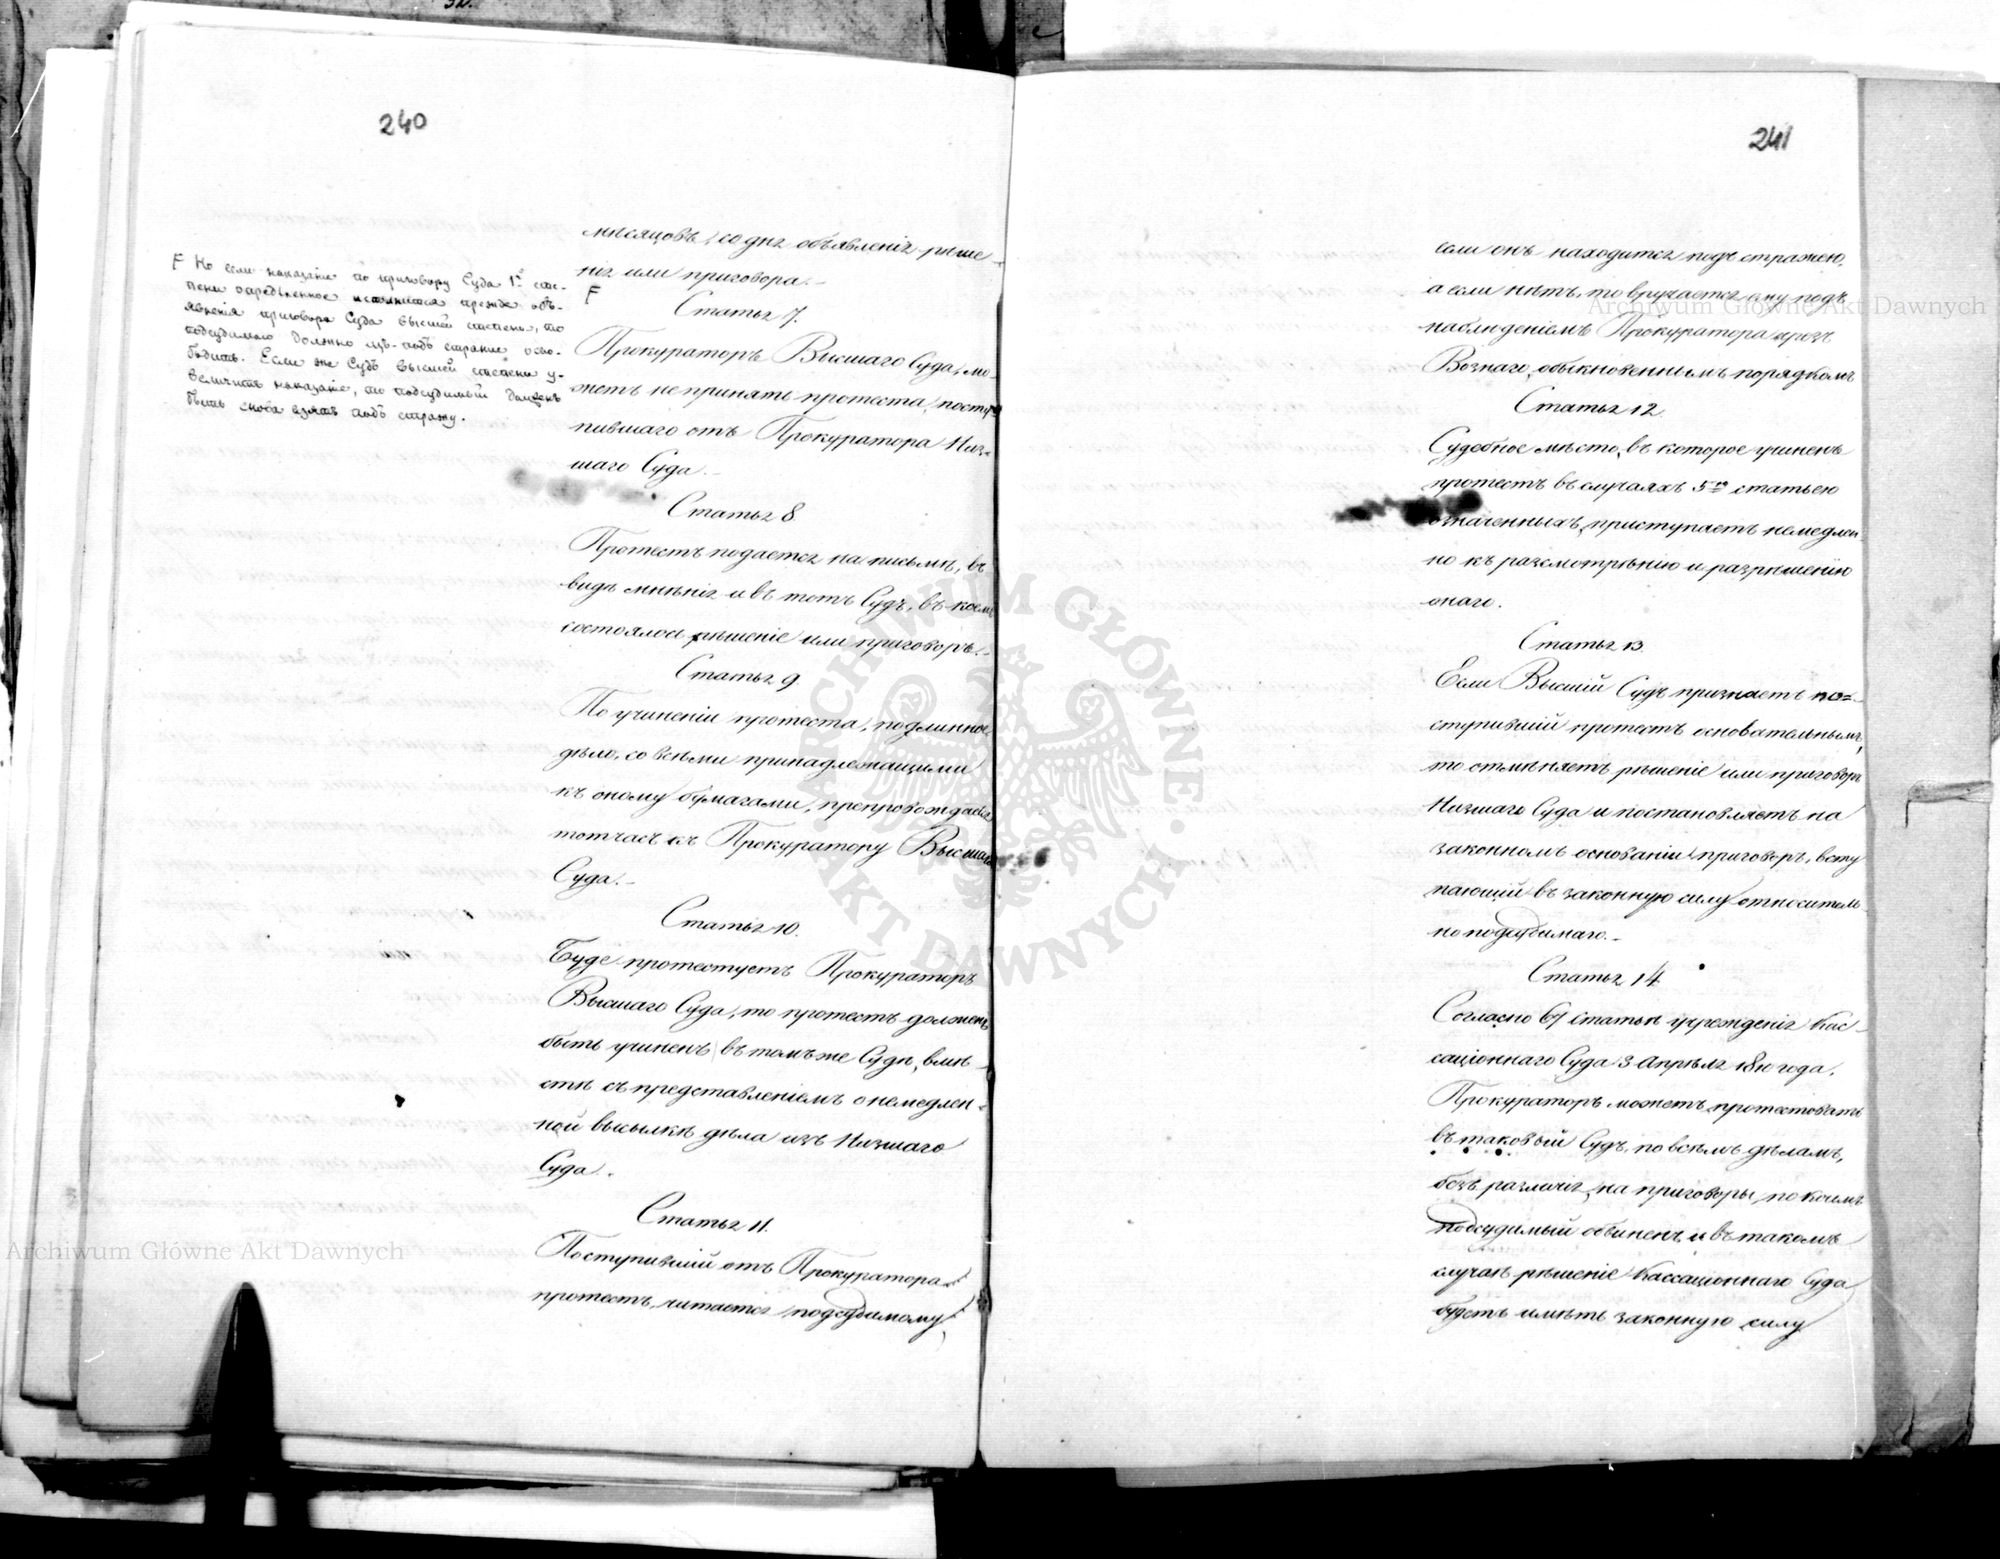 240
мѣсяцовъ, со дня объявленія рѣше-
нія или приговора.-
F
F Но если наказаніе по приговору Суда 1й сте-
пени опредѣленное исполнится прежде объ-
явленія приговора Суда высшей степени, то
подсудимаго должно изъ-подъ стражи осво-
бодить. Если же Судъ высшей степени у-
величитъ наказаніе, то подсудимый долженъ
быть снова взятъ подъ стражу.
Статья 7.
Прокураторъ Высшаго Суда, мо-
жетъ не принять протеста, посту-
пившаго отъ Прокуратора Низ-
шаго Суда.-
Статья 8.
Протестъ подается на письмѣ, въ
видѣ мнѣнія и въ тотъ Судъ, въ коемъ
состоялось рѣшеніе или приговоръ.-
Статья 9.
По учиненіи протеста, подлинное
дѣло, со всѣми принадлежащими
къ оному бумагами, препровождается
тотчасъ къ Прокуратору Высшаго
Суда.-
Статья 10.
Буде протестуетъ Прокураторъ
Высшаго Суда, то протестъ долженъ
быть учиненъ въ томъ же Судѣ, вмѣ-
стѣ съ представленіемъ о немедлен-
ной высылкѣ дѣла изъ Низшаго
Суда.-
Статья 11.
Поступившій отъ Прокуратора
протестъ, читается подсудимому,
241
если онъ находится подъ стражею,
а если нѣтъ, то вручается ему подъ
наблюденіемъ Прокуратора чрезъ
Вознаго, обыкновеннымъ порядкомъ
Статья 12.
Судебное мѣсто, въ которое учиненъ
протестъ въ случаяхъ 5ю статьею
означенныхъ, приступаетъ немедлен-
но къ разсмотрѣнію и разрѣшенію
онаго.
Статья 13.
Если Высшій Судъ признаетъ по=
ступившій протестъ основательнымъ,
то отмѣняетъ рѣшеніе или приговоръ
Низшаго Суда и постановляетъ на
законномъ основаніи приговоръ, всту
пающій въ законную силу относитель-
но подсудимаго.-
Статья 14
Согласно 67 статьѣ учрежденія Кас-
саціоннаго Суда 3 Апрѣля 1810 года,
Прокураторъ можетъ протестовать
въ таковый Судъ, по всѣмъ дѣламъ,
безъ различія, на приговоры, по коимъ
подсудимый обвиненъ, и въ такомъ
случаѣ рѣшеніе Кассаціоннаго Суда
будетъ имѣть законную силу
Archiwum Główne Akt Dawnych
Archiwum Główne Akt Dawnych
ARCHIWUM GŁÓWNE · AKT DAWNYCH ·